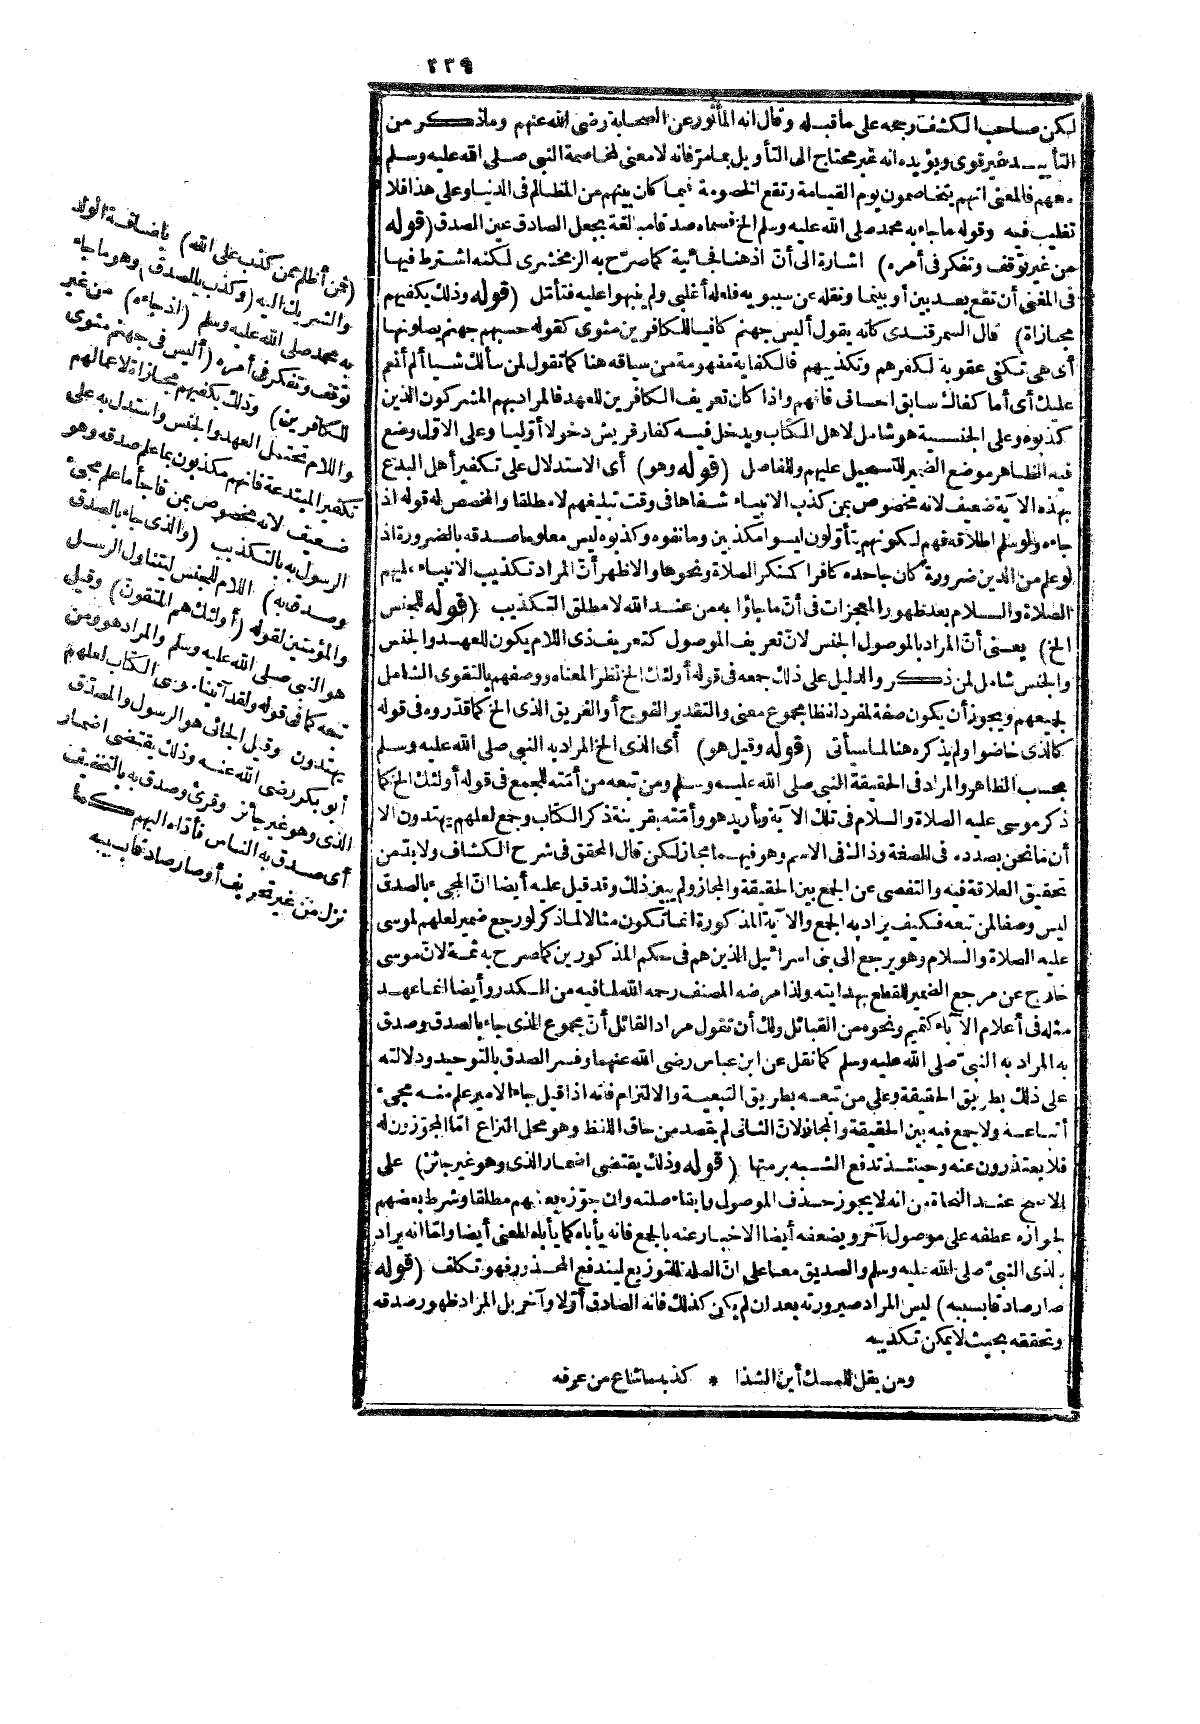 ٣٣٩
لكن صاحب الكشف رجحه على ما قبله وقال انه المأثور عن الصحابة رضى الله عنهم وماذكر من
التأييد غير قوى ويؤيده انه غير محتاج الى التأويل بمامرّ فانه لا معنى لمخاصمة النبي صلى الله عليه وسلم
معهم فالمعنى انهم يتخاصمون يوم القيامة وتقع الخصومة فيما كان بينهم من المظالم فى الدنيا وعلى هذا فلا
تغليب فيه وقوله ما جاء به محمد صلى الله عليه وسلم الخ فسماه صدقا مبالغة بجعل الصادق عين الصدق (قوله
من غير توقف وتفكر فى أمره) اشارة الى أنّ اذ هنا فجائية كما صرّح به الزمخشرى لكنه اشترط فيها
فى المغنى أن تقع بعد بين أو بينما ونقله عن سيبويه فلعله أغلبى ولم ينبهوا عليه فتأتل (قوله وذلك يكفيهم
مجازاة) قال السمرقندى كانه يقول أليس جهنم كافيا للكافرين مثوى كقوله حسبهم جهنم يصلونها
أى هى تكفى عقوبة لكفرهم وتكذيبهم فالكفاية مفهومة من سياقه هنا كما تقول لمن سألك شيأ ألم أنعم
عليك أى أما كفاك سابق احسانى فافهم واذا كان تعريف الكافرين للعهد فالمراد بهم المشركون الذين
كذبوه وعلى الجنسية هو شامل لاهل الكتاب ويدخل فيه كفار قريش دخولا أوّليا وعلى الاول وضع
فيه الظاهر موضع الضمير للتسجيل عليهم وللفاصل (قوله وهو) أى الاستدلال على تكفير أهل البدع
بهذه الآية ضعيف لانه مخصوص بمن كذب الانبياء شفاها فى وقت تبليغهم لا مطلقا والمخصص له قوله اذ
جاءه ولو سلم اطلاقه فهم لكونهم يتأولون ليسوا مكذبين ومانفوه وكذبوه ليس معلوما صدقه بالضرورة اذ
لو علم من الدين ضرورة كان جاحده كافرا كمنكر الصلاة ونحوها والاظهر أنّ المراد تكذيب الانبياء عليهم
الصلاة والسلام بعد ظهور المعجزات فى أنّ ما جاؤا به من عند الله لا مطلق التكذيب (قوله للجنس
الخ) يعنى أنّ المراد بالموصول الجنس لانّ تعريف الموصول كتعريف ذى اللام يكون للعهد والجنس
والجنس شامل لمن ذكر والدليل على ذلك جمعه فى قوله أولئك الخ نظرا لمعناه ووصفهم بالتقوى الشامل
لجميعهم ويجوز أن يكون صفة لمفرد لفظا مجموع معنى والتقدير الفوج أو الفريق الذى الخ كما قدّروه فى قوله
كالذى خاضوا ولم يذكره هنا لما سيأتى (قوله وقيل هو) أى الذى الخ المراد به النبي صلى الله عليه وسلم
بحسب الظاهر والمراد فى الحقيقة النبي صلى الله عليه وسلم ومن تبعه من أمّته للجمع فى قوله أولئك الخ كما
ذكر موسى عليه الصلاة والسلام فى تلك الآية وأريد هو وأمّته بقرينة ذكر الكتاب وجمع لعلهم يهتدون الا
أن ما نحن بصدده فى الصفة وذالك فى الاسم وهو فيهما مجاز لكن قال المحقق فى شرح الكشاف ولا بدّ من
تحقيق العلاقة فيه والتفصى عن الجمع بين الحقيقة والمجاز ولم يبين ذلك وقد قيل عليه أيضا انّ المجىء بالصدق
ليس وصفا لمن تبعه فكيف يراد به الجمع والآية المذكورة انما تكون مثالا لماذكر لو رجع ضمير لعلهم لموسى
عليه الصلاة والسلام وهو يرجع الى بنى اسرائيل الذين هم فى حكم المذكورين كما صرح به ثمة لانّ موسى
خارج عن مرجع الضمير للقطع بهدايته ولذا مرضه المصنف رحمه الله لما فيه من الكدر وأيضا انما عهد
مثله فى أعلام الآباء كتميم ونحوه من القبائل ولك أن تقول مراد القائل أنّ مجموع الذى جاء بالصدق وصدق
به المراد به النبيّ صلى الله عليه وسلم كما نقل عن ابن عباس رضى الله عنهما وفسر الصدق بالتوحيد ودلالته
على ذلك بطريق الحقيقة وعلى من تبعه بطريق التبعية والالتزام فانه اذا قيل جاء الامير علم منه مجىء
أتباعه ولا جمع فيه بين الحقيقة والمجاز لانّ الثانى لم يقصد من حاق اللفظ وهو محل النزاع امّا المجوّزون له
فلا يعتذرون عنه وحينئذ تدفع الشبه برمتها (قوله وذلك يقتضى اضمار الذى وهو غير جائز) على
الاصح عند النحاة من انه لا يجوز حذف الموصول وابقاء صلته وان جوّزه بعضهم مطلقا وشرط بعضهم
لجوازه عطفه على موصول آخر ويضعفه أيضا الاخبار عنه بالجمع فانه يأباه كما يأباه المعنى أيضا وامّا انه يراد
بالذى النبيّ صلى الله عليه وسلم والصديق معا على انّ الصلة للتوزيع ليندفع المحذور فهو تكلف (قوله
صار صادقا بسببه) ليس المراد صيرورته بعد ان لم يكن كذلك فانه الصادق أوّلا وآخر بل المراد ظهور صدقه
وتحققه بحيث لا يمكن تكذيبه
ومن يقل للمسك أين الشذا * كذبه ما شاع من عرفه
(فمن أظلم ممن كذب على الله) باضافة الولد
والشريك اليه (وكذب بالصدق) وهو ما جاء
به محمد صلى الله عليه وسلم (اذ جاءه) من غير
توقف وتفكر فى أمره (أليس فى جهنم مثوى
للكافرين) وذلك يكفيهم مجازاة لاعمالهم
واللام تحتمل العهد والجنس واستدل به على
تكفير المبتدعة فانهم مكذبون بما علم صدقه وهو
ضعيف لانه مخصوص بمن فاجأ ما علم مجىء
الرسول به بالتكذيب (والذى جاء بالصدق
وصدق به) اللام للجنس ليتناول الرسل
والمؤمنين لقوله (أولئك هم المتقون) وقيل
هو النبي صلى الله عليه وسلم والمراد هو ومن
تبعه كما فى قوله ولقد آتينا موسى الكتاب لعلهم
يهتدون وقيل الجائى هو الرسول والمصدّق
أبو بكر رضى الله عنه وذلك يقتضى اضمار
الذى وهو غير جائز وقرئ وصدق به بالتخفيف
أى صدق به الناس فأدّاه اليهم كما
نزل من غير تحريف أو صار صادقا بسببه